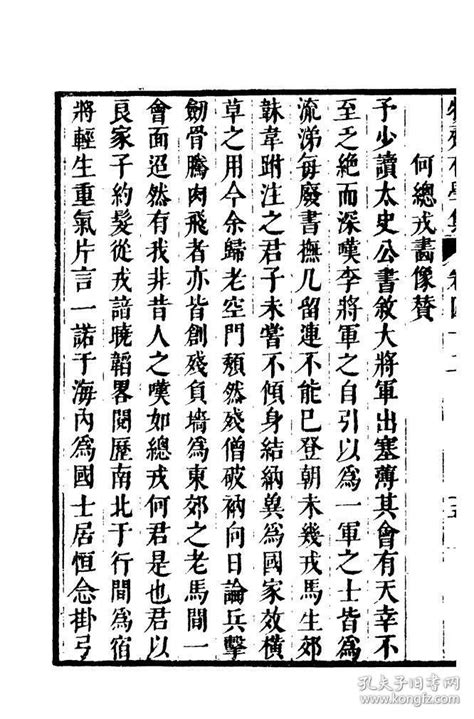 牧齋有學集 卷四十二
何總戎畫像贊
予少讀太史公書敘大將軍出塞薄其會有天幸不
至乏絶而深嘆李將軍之自引以為一軍之士皆為
流涕每廢書撫几留連不能已登朝未幾戎馬生郊
韎韋跗注之君子未嘗不傾身結納冀為國家效橫
草之用今余歸老空門頹然殘僧破衲向日論兵擊
劒骨騰肉飛者亦皆創殘負墻為東郊之老馬間一
會面迢然有我非昔人之嘆如總戎何君是也君以
良家子約髮從戎諳曉韜畧閱歷南北于行間為宿
將輕生重氣片言一諾于海內為國士居恒念掛弓
孔夫子旧书网